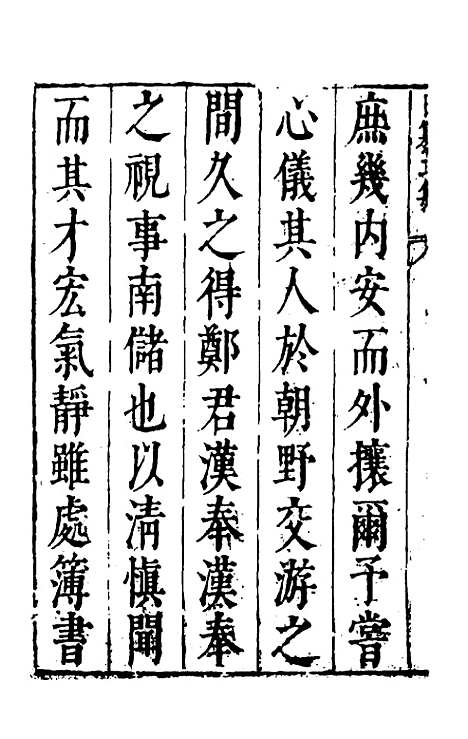 庶幾內安而外攘爾予嘗
心儀其人於朝野交游之
間久之得鄭君漢奉漢奉
之視事南儲也以清慎聞
而其才宏氣靜雖處簿書